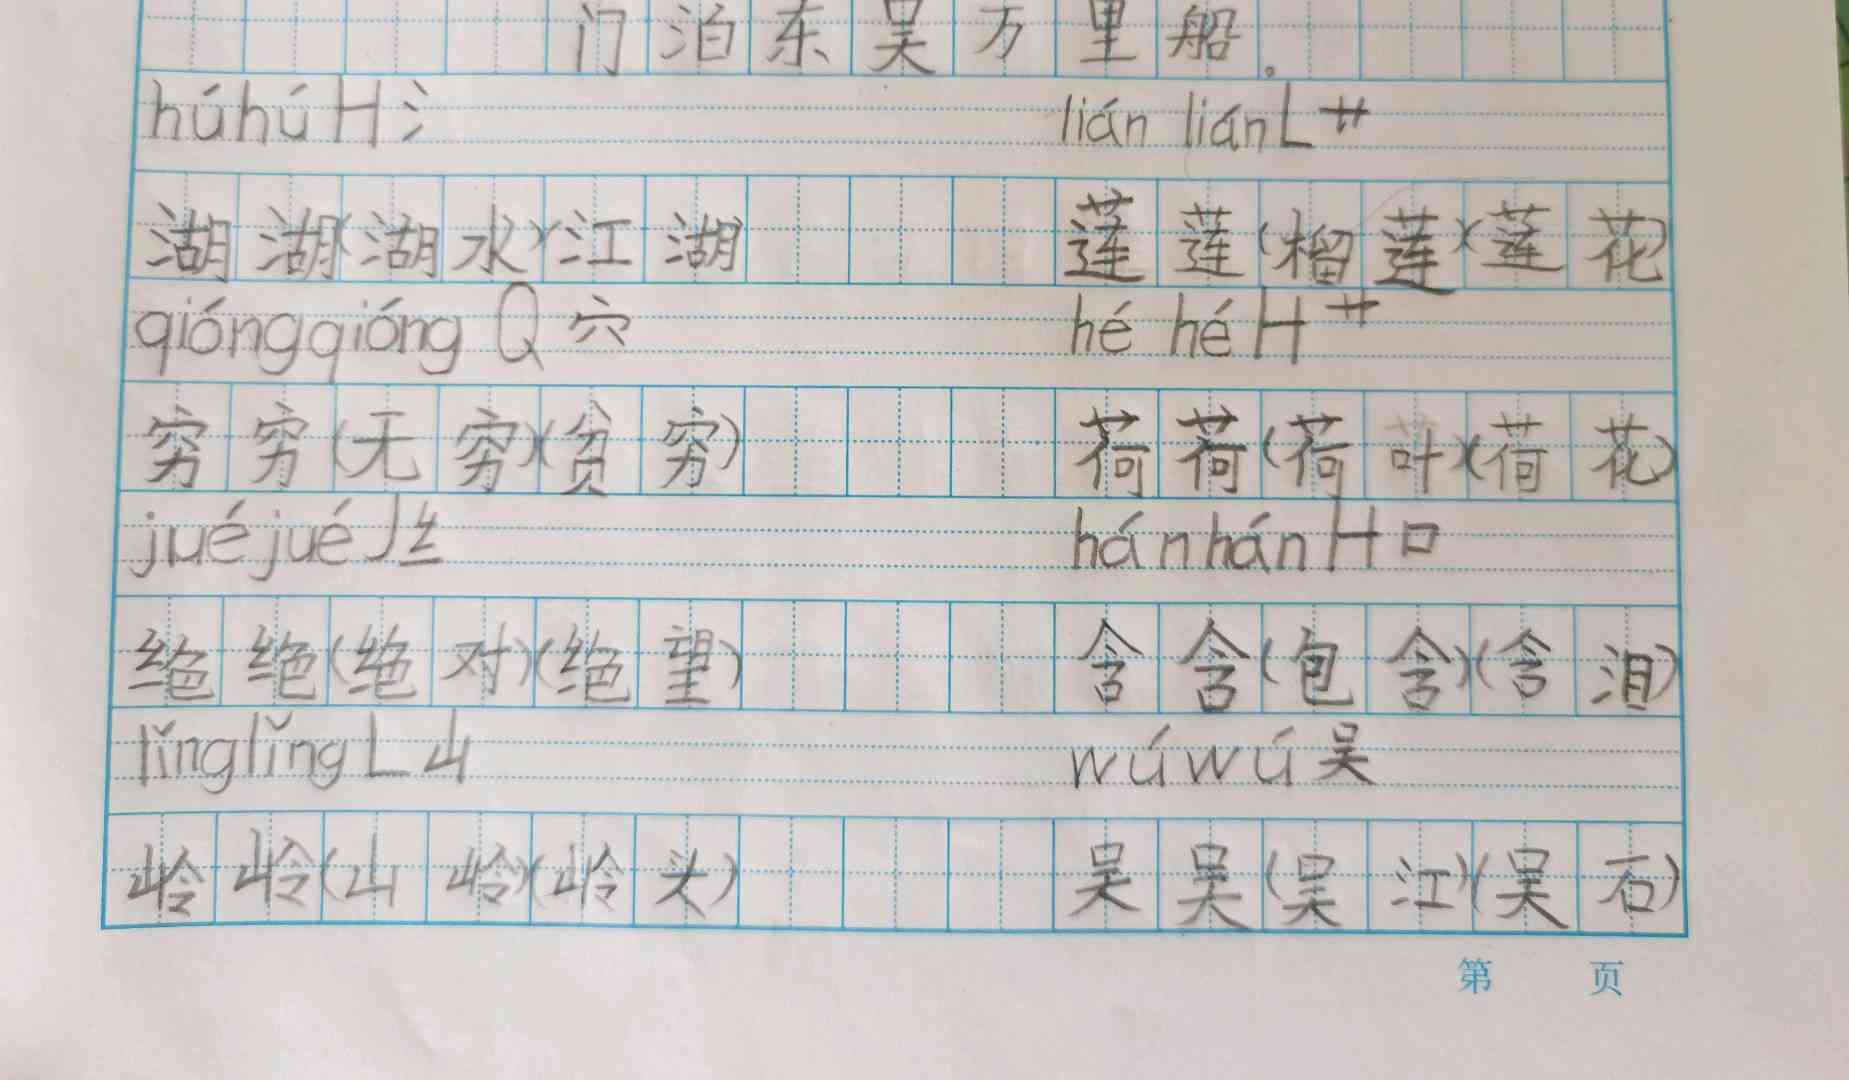 门泊东吴万里船。
húhú H 氵 lián lián L 艹
湖湖(湖水)(江湖) 莲莲(榴莲)(莲花)
qióngqióng Q 穴 hé hé H 艹
穷穷(无穷)(贫穷) 荷荷(荷叶)(荷花)
juéjué J 纟 hánhán H 口
绝绝(绝对)(绝望) 含含(包含)(含泪)
lǐnglǐng L 山 wúwú 吴
岭岭(山岭)(岭头) 吴吴(吴江)(吴石)
第 页